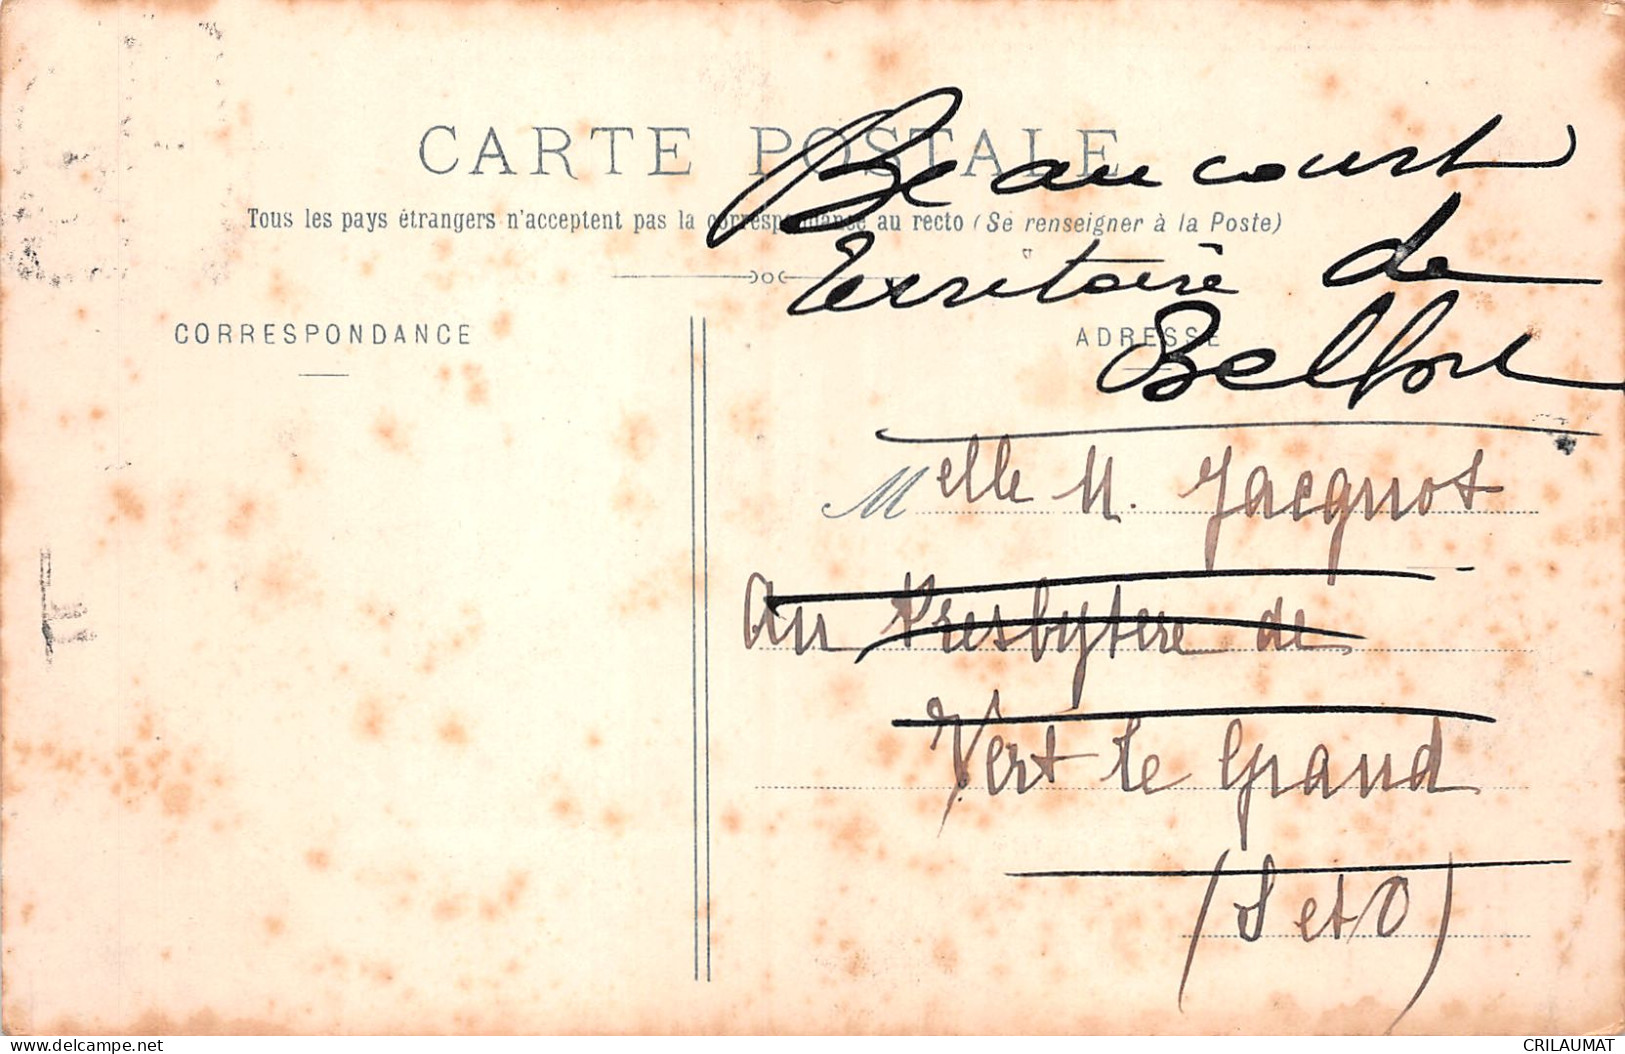 CARTE POSTALE
Tous les pays étrangers n'acceptent pas la correspondance au recto (Se renseigner à la Poste)
Beaucourt
Territoire de
Belfort
CORRESPONDANCE
ADRESSE
Melle M. Jacquot
Au Presbytere de
Vert le Grand
(S et O)
delcampe.net
CRILAUMAT